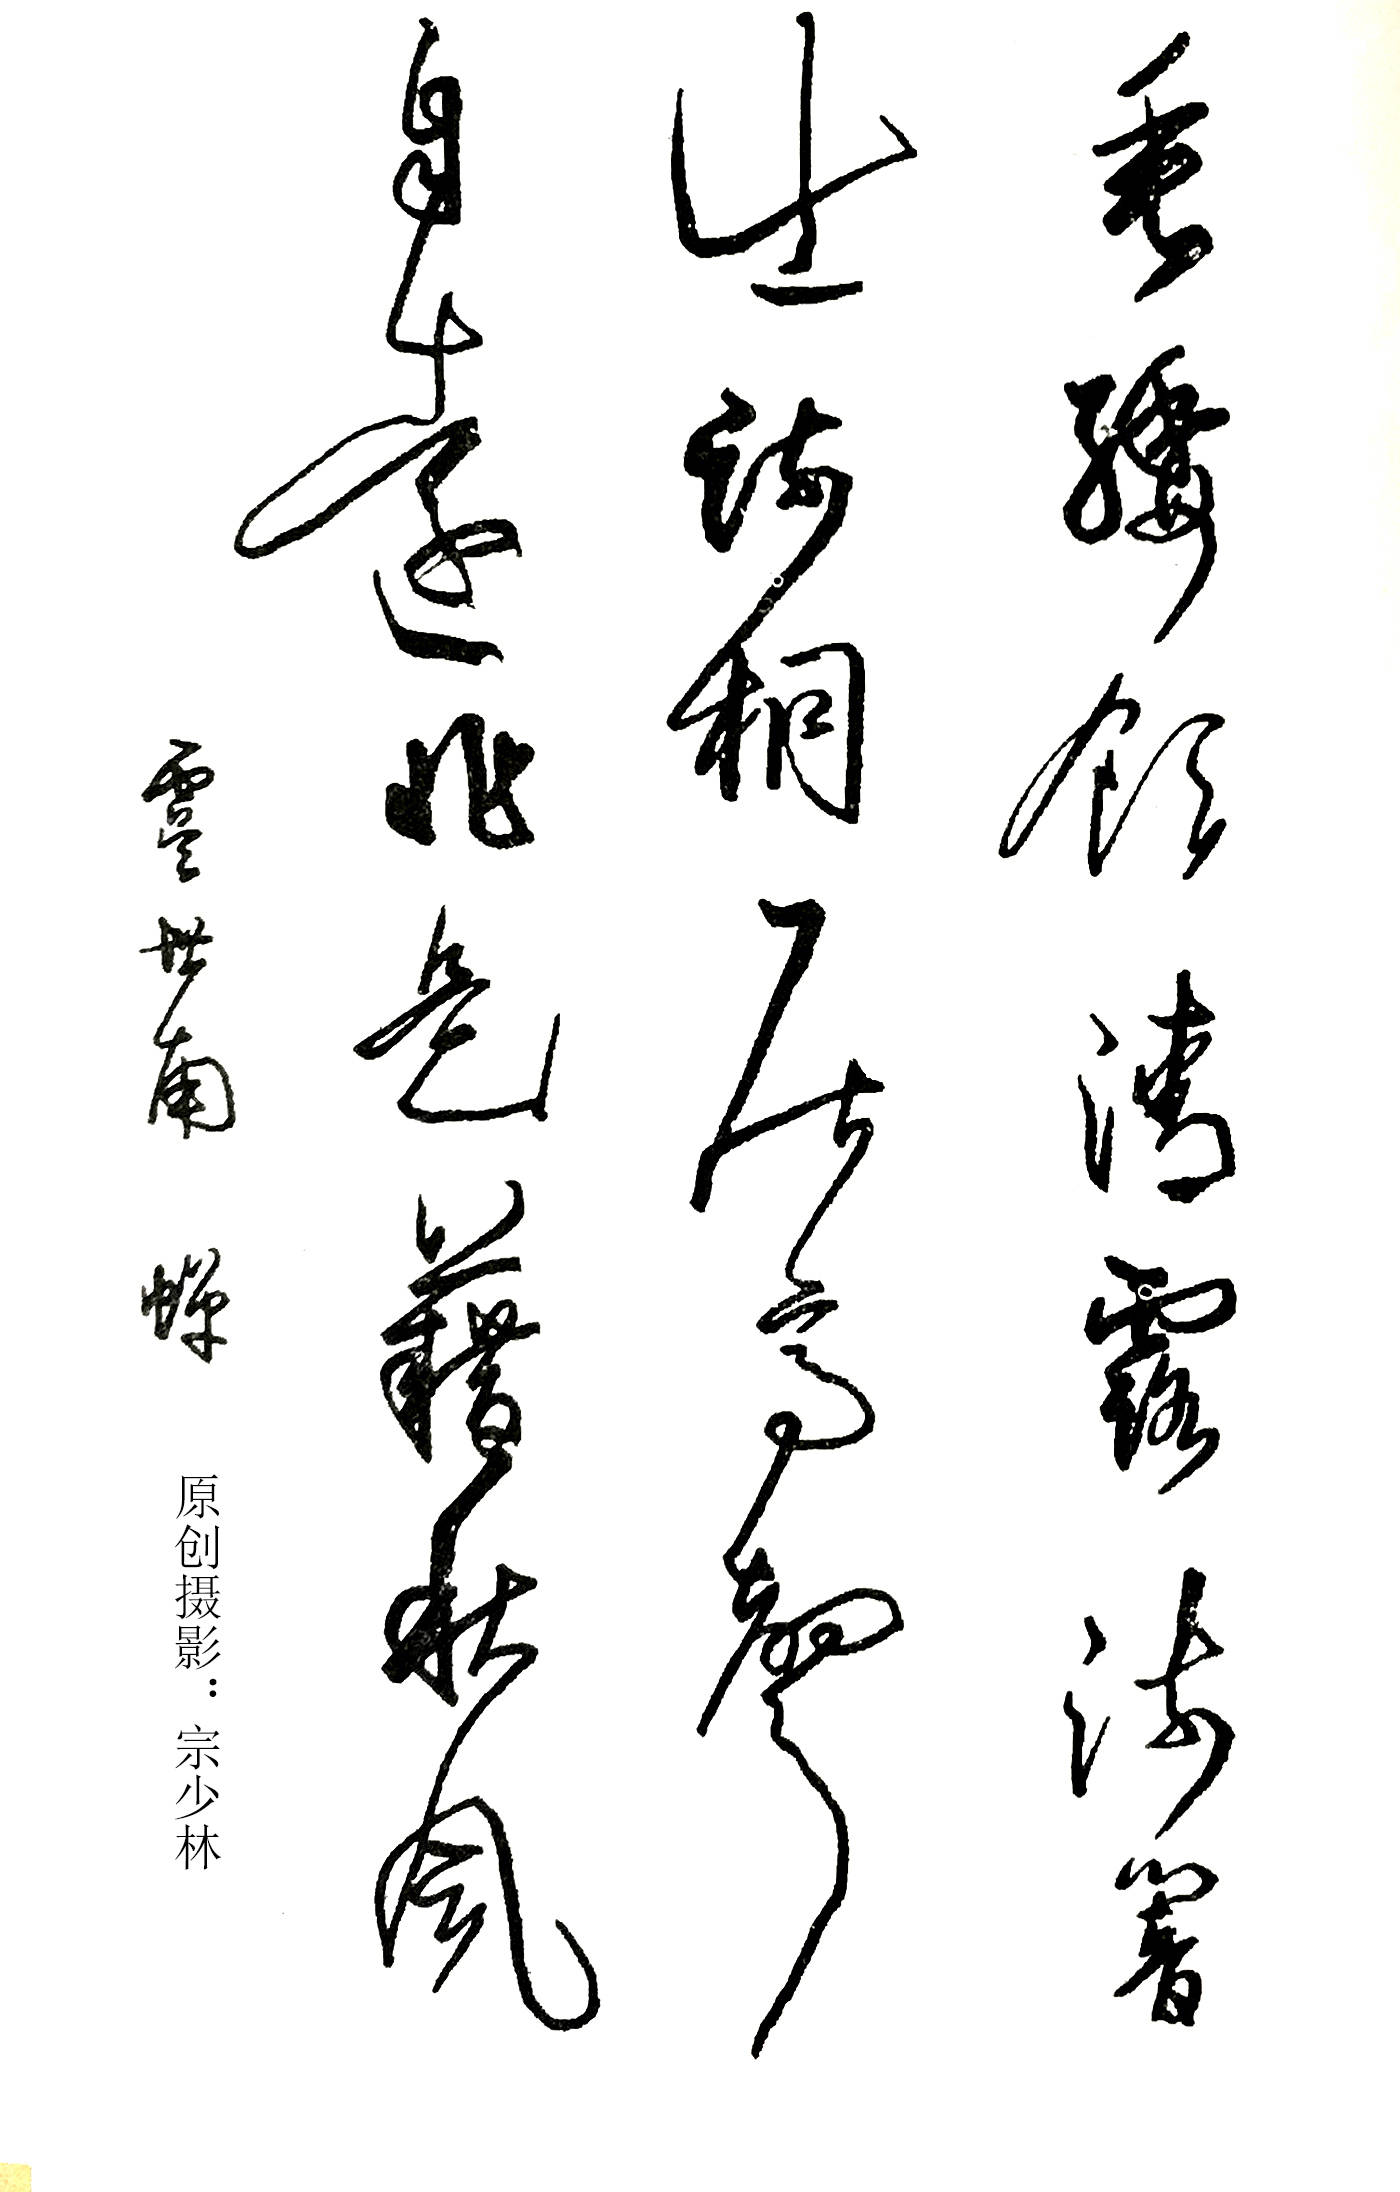 垂縷飲清露流響
出疏桐居高聲
自遠非是藉秋風
虞世南 蝉
原创摄影：宗少林